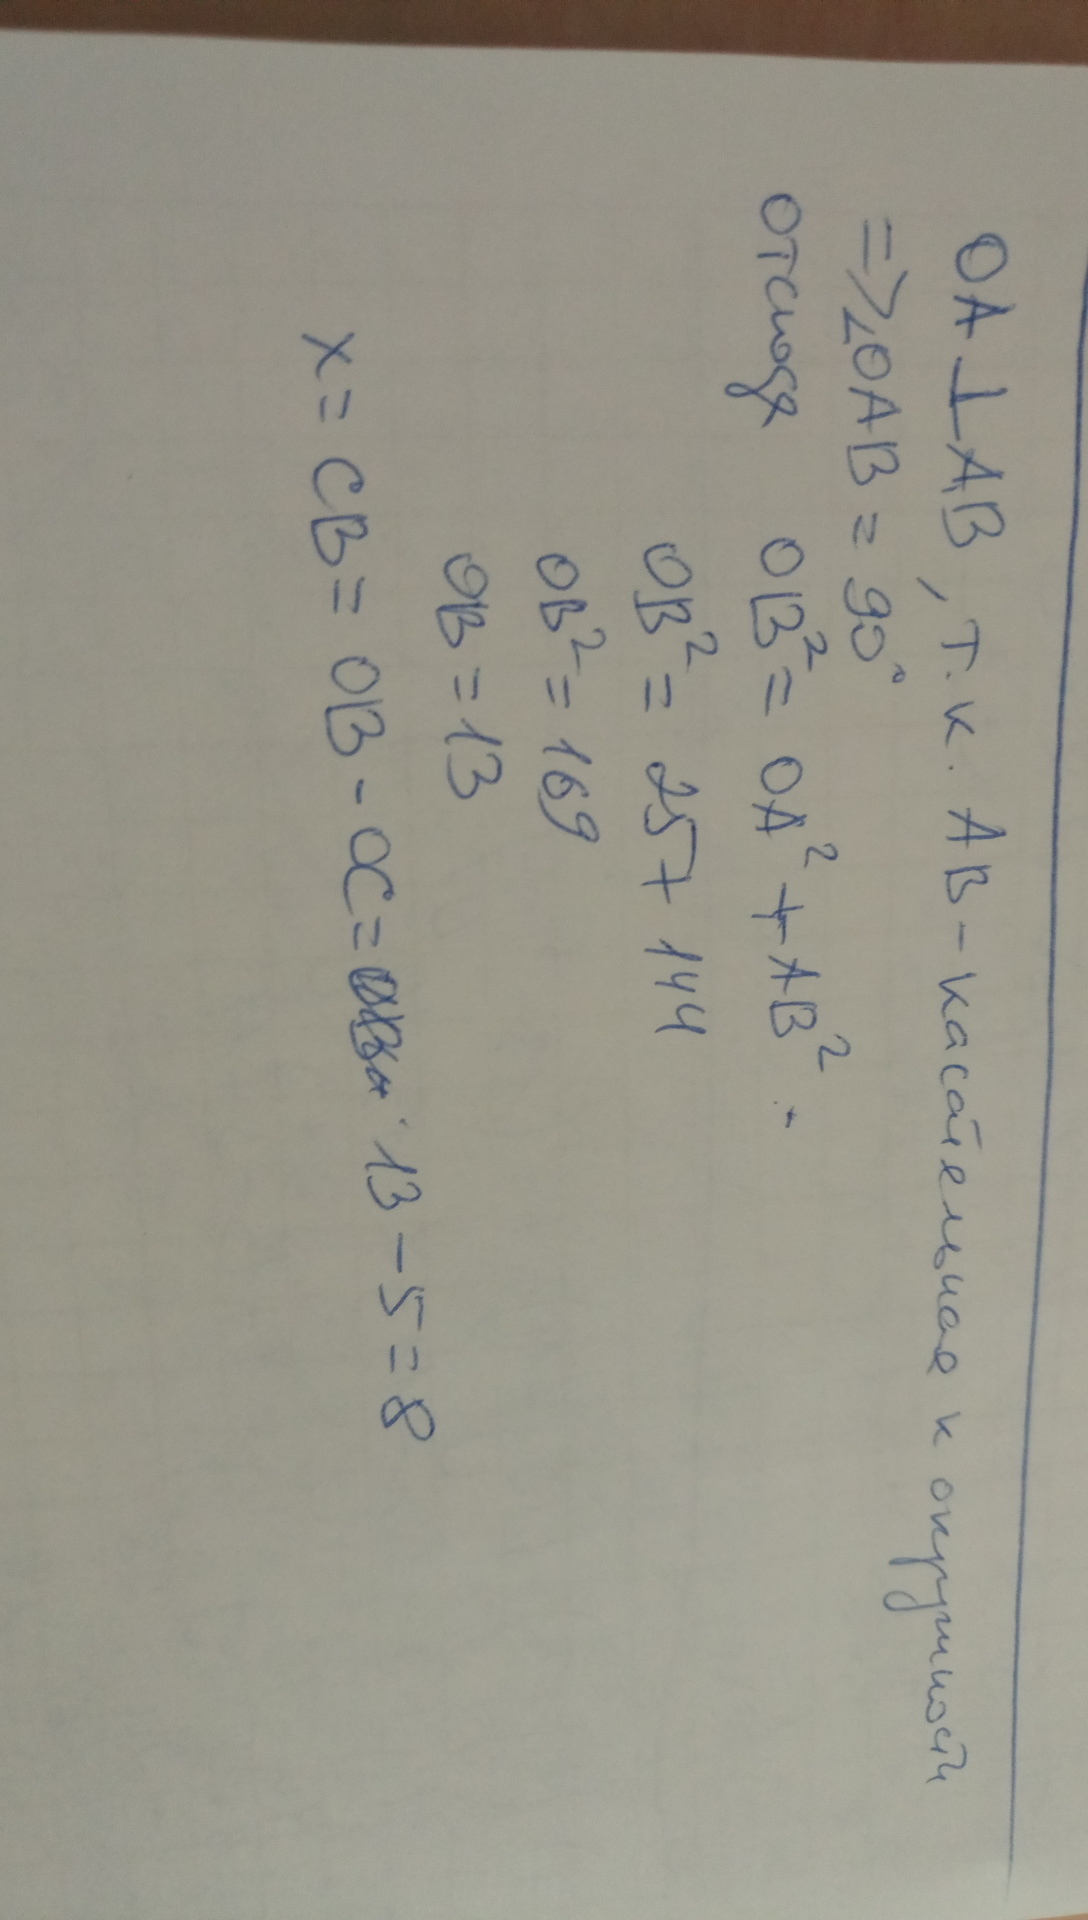 OA⊥AB, т.к. AB-касательная к окружности
=>∠OAB = 90°
отсюда OB² = OA² + AB²
OB² = 25+ 144
OB² = 169
OB = 13
x = CB = OB - OC = 13 - 5 = 8